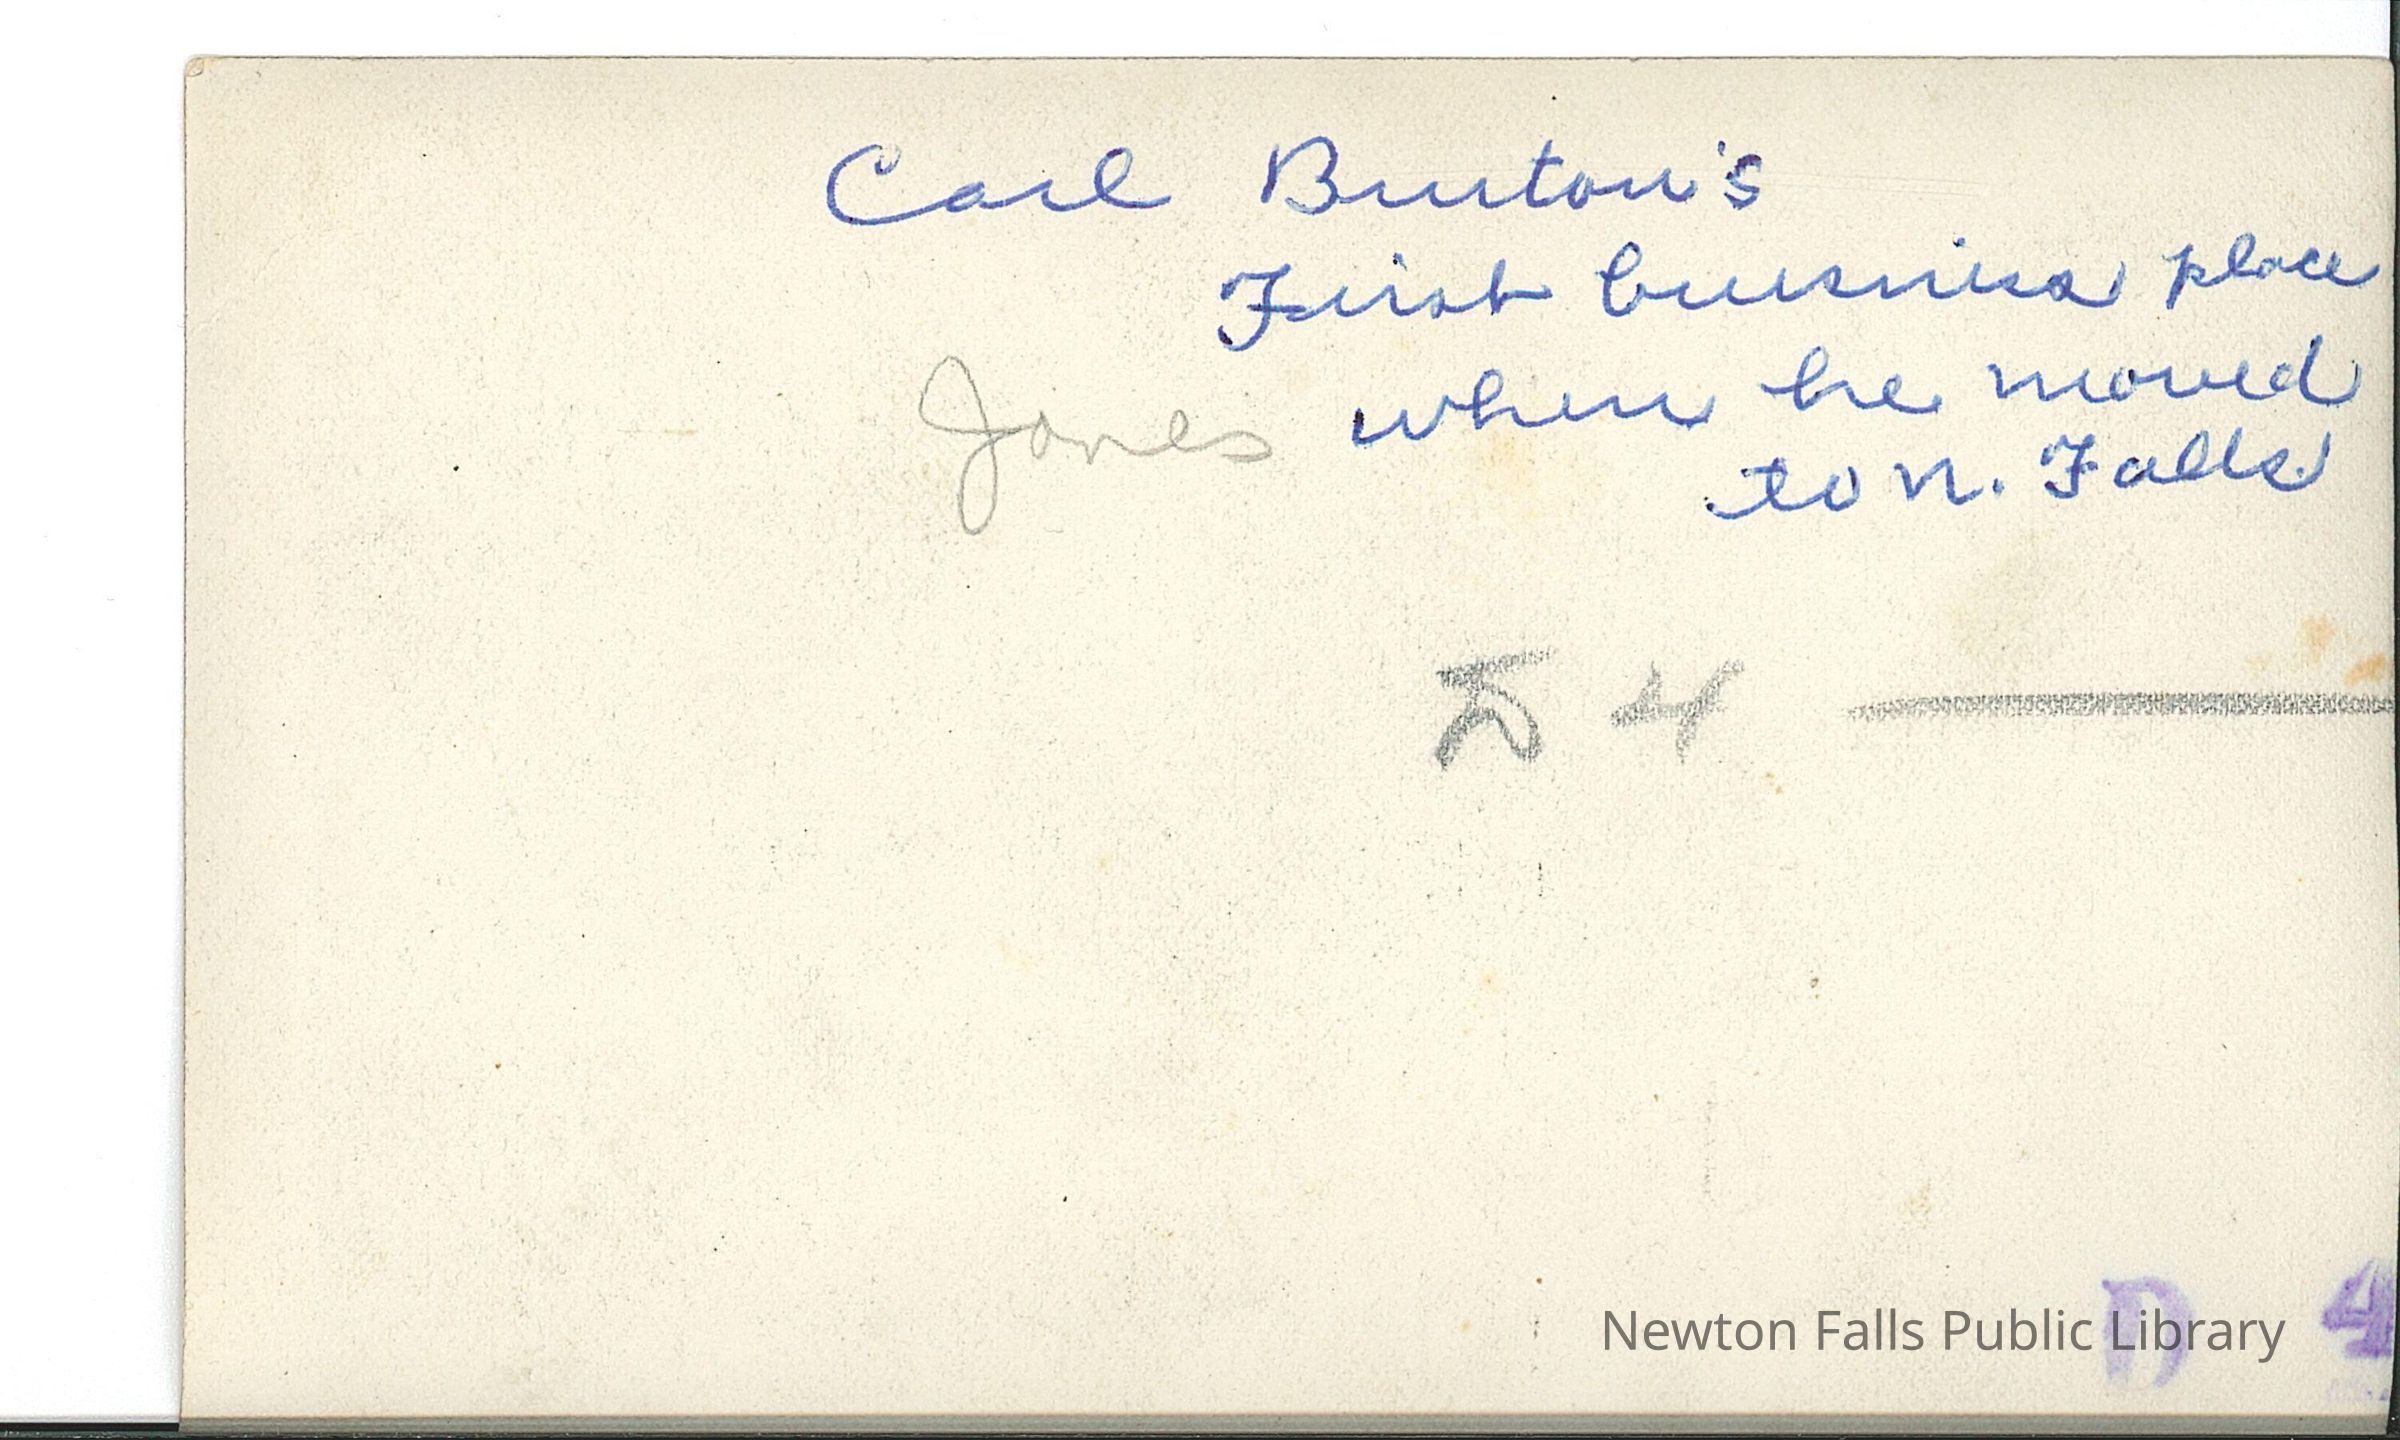 Carl Burton's
First buisness place
Jones when he moved
to N. Falls
54
Newton Falls Public Library
4